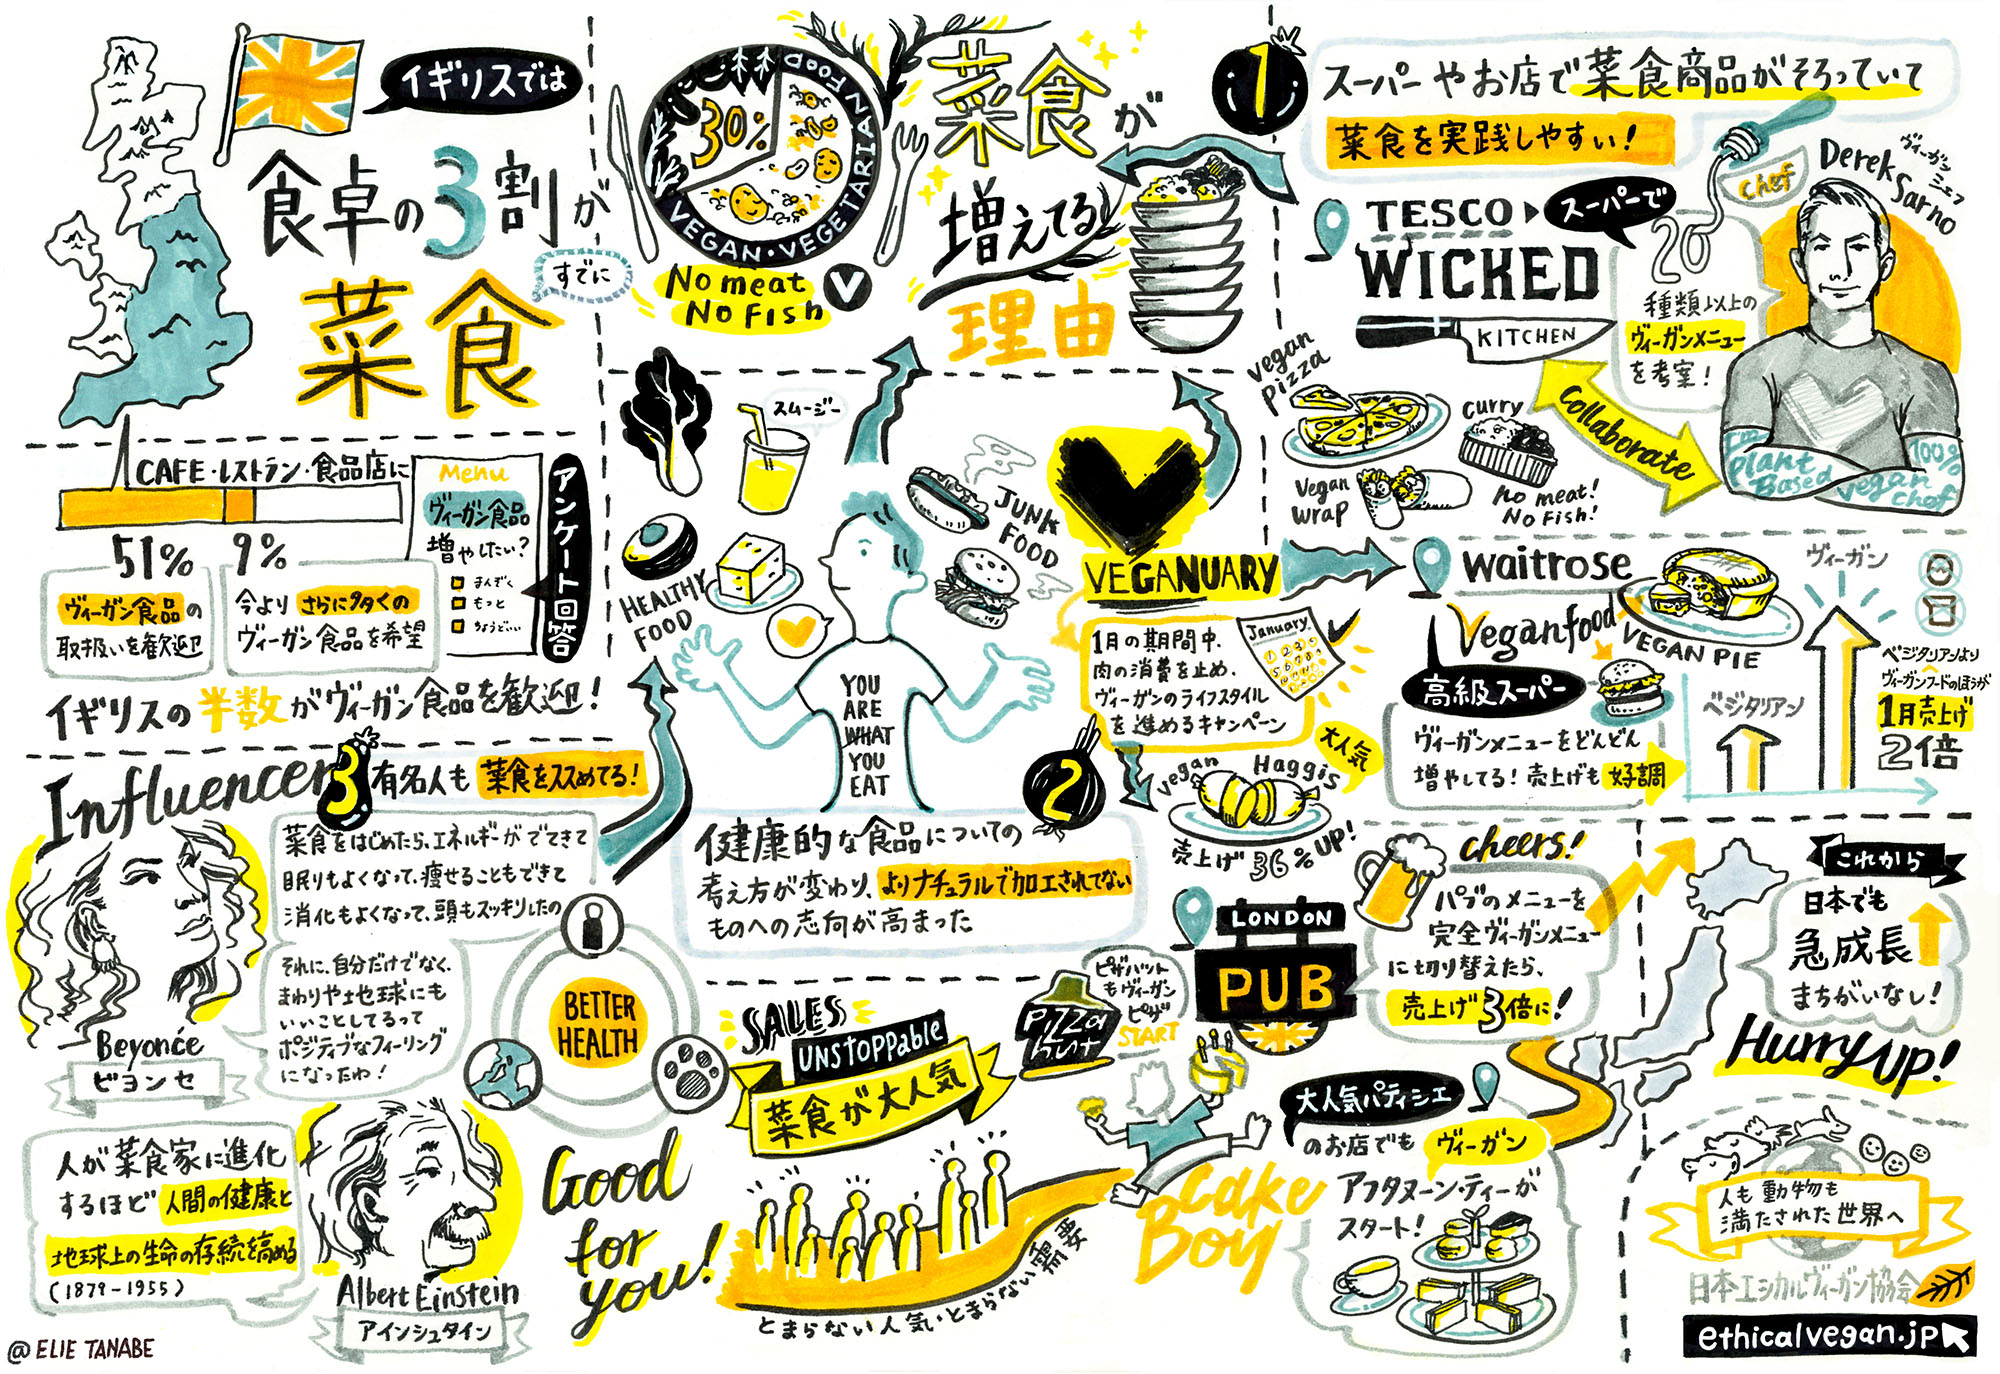 イギリスでは
食卓の3割が
すでに
菜食
30%
VEGAN・VEGETARIAN FOOD
No meat
No Fish
V
菜食が
増えてる!
理由
1
スーパーやお店で菜食商品がそろっていて
菜食を実践しやすい!
TESCO
WICKED
KITCHEN
スーパーで
20
種類以上の
ヴィーガンメニュー
を考案!
chef
Derek
Sarno
ヴィーガン
シェフ
I'm
Plant
Based
100%
vegan
chef
Collaborate
vegan
pizza
curry
Vegan
wrap
no meat!
No Fish!
CAFE・レストラン・食品店に
51%
ヴィーガン食品の
取扱いを歓迎
9%
今よりさらに多くの
ヴィーガン食品を希望
Menu
ヴィーガン食品
増やしたい?
まんぞく
もっと
ちょうどいい
アンケート回答
イギリスの半数がヴィーガン食品を歓迎!
スムージー
HEALTHY
FOOD
JUNK
FOOD
YOU
ARE
WHAT
YOU
EAT
2
健康的な食品についての
考え方が変わり、よりナチュラルで加工されてない
ものへの志向が高まった
VEGANUARY
1月の期間中、
肉の消費を止め、
ヴィーガンのライフスタイル
を進めるキャンペーン
January
大人気
vegan
Haggis
売上げ36%UP!
waitrose
Veganfood
VEGAN PIE
高級スーパー
ヴィーガンメニューをどんどん
増やしてる! 売上げも好調
ベジタリアン
ヴィーガン
ベジタリアンより
ヴィーガンフードのほうが
1月売上げ
2倍
Influencer
3
有名人も菜食をススめてる!
菜食をはじめたら、エネルギーがでてきて
眠りもよくなって、痩せることもできて
消化もよくなって、頭もスッキリしたの
それに、自分だけでなく、
まわりや地球にも
いいことしてるって
ポジティブなフィーリング
になったわ!
Beyoncé
ビヨンセ
BETTER
HEALTH
人が菜食家に進化
するほど人間の健康と
地球上の生命の存続を高める
(1879-1955)
Albert Einstein
アインシュタイン
Good
for
you!
SALES
UNSTOPPABLE
菜食が大人気
とまらない人気・とまらない需要
Pizza
Hut
ピザハット
もヴィーガン
ピザ
START
LONDON
PUB
cheers!
パブのメニューを
完全ヴィーガンメニュー
に切り替えたら、
売上げ3倍に!
Cake
Boy
大人気パティシエ
のお店でもヴィーガン
アフタヌーン・ティーが
スタート!
これから
日本でも
急成長
まちがいなし!
Hurry up!
人も動物も
満たされた世界へ
日本エシカルヴィーガン協会
ethicalvegan.jp
@ELIE TANABE